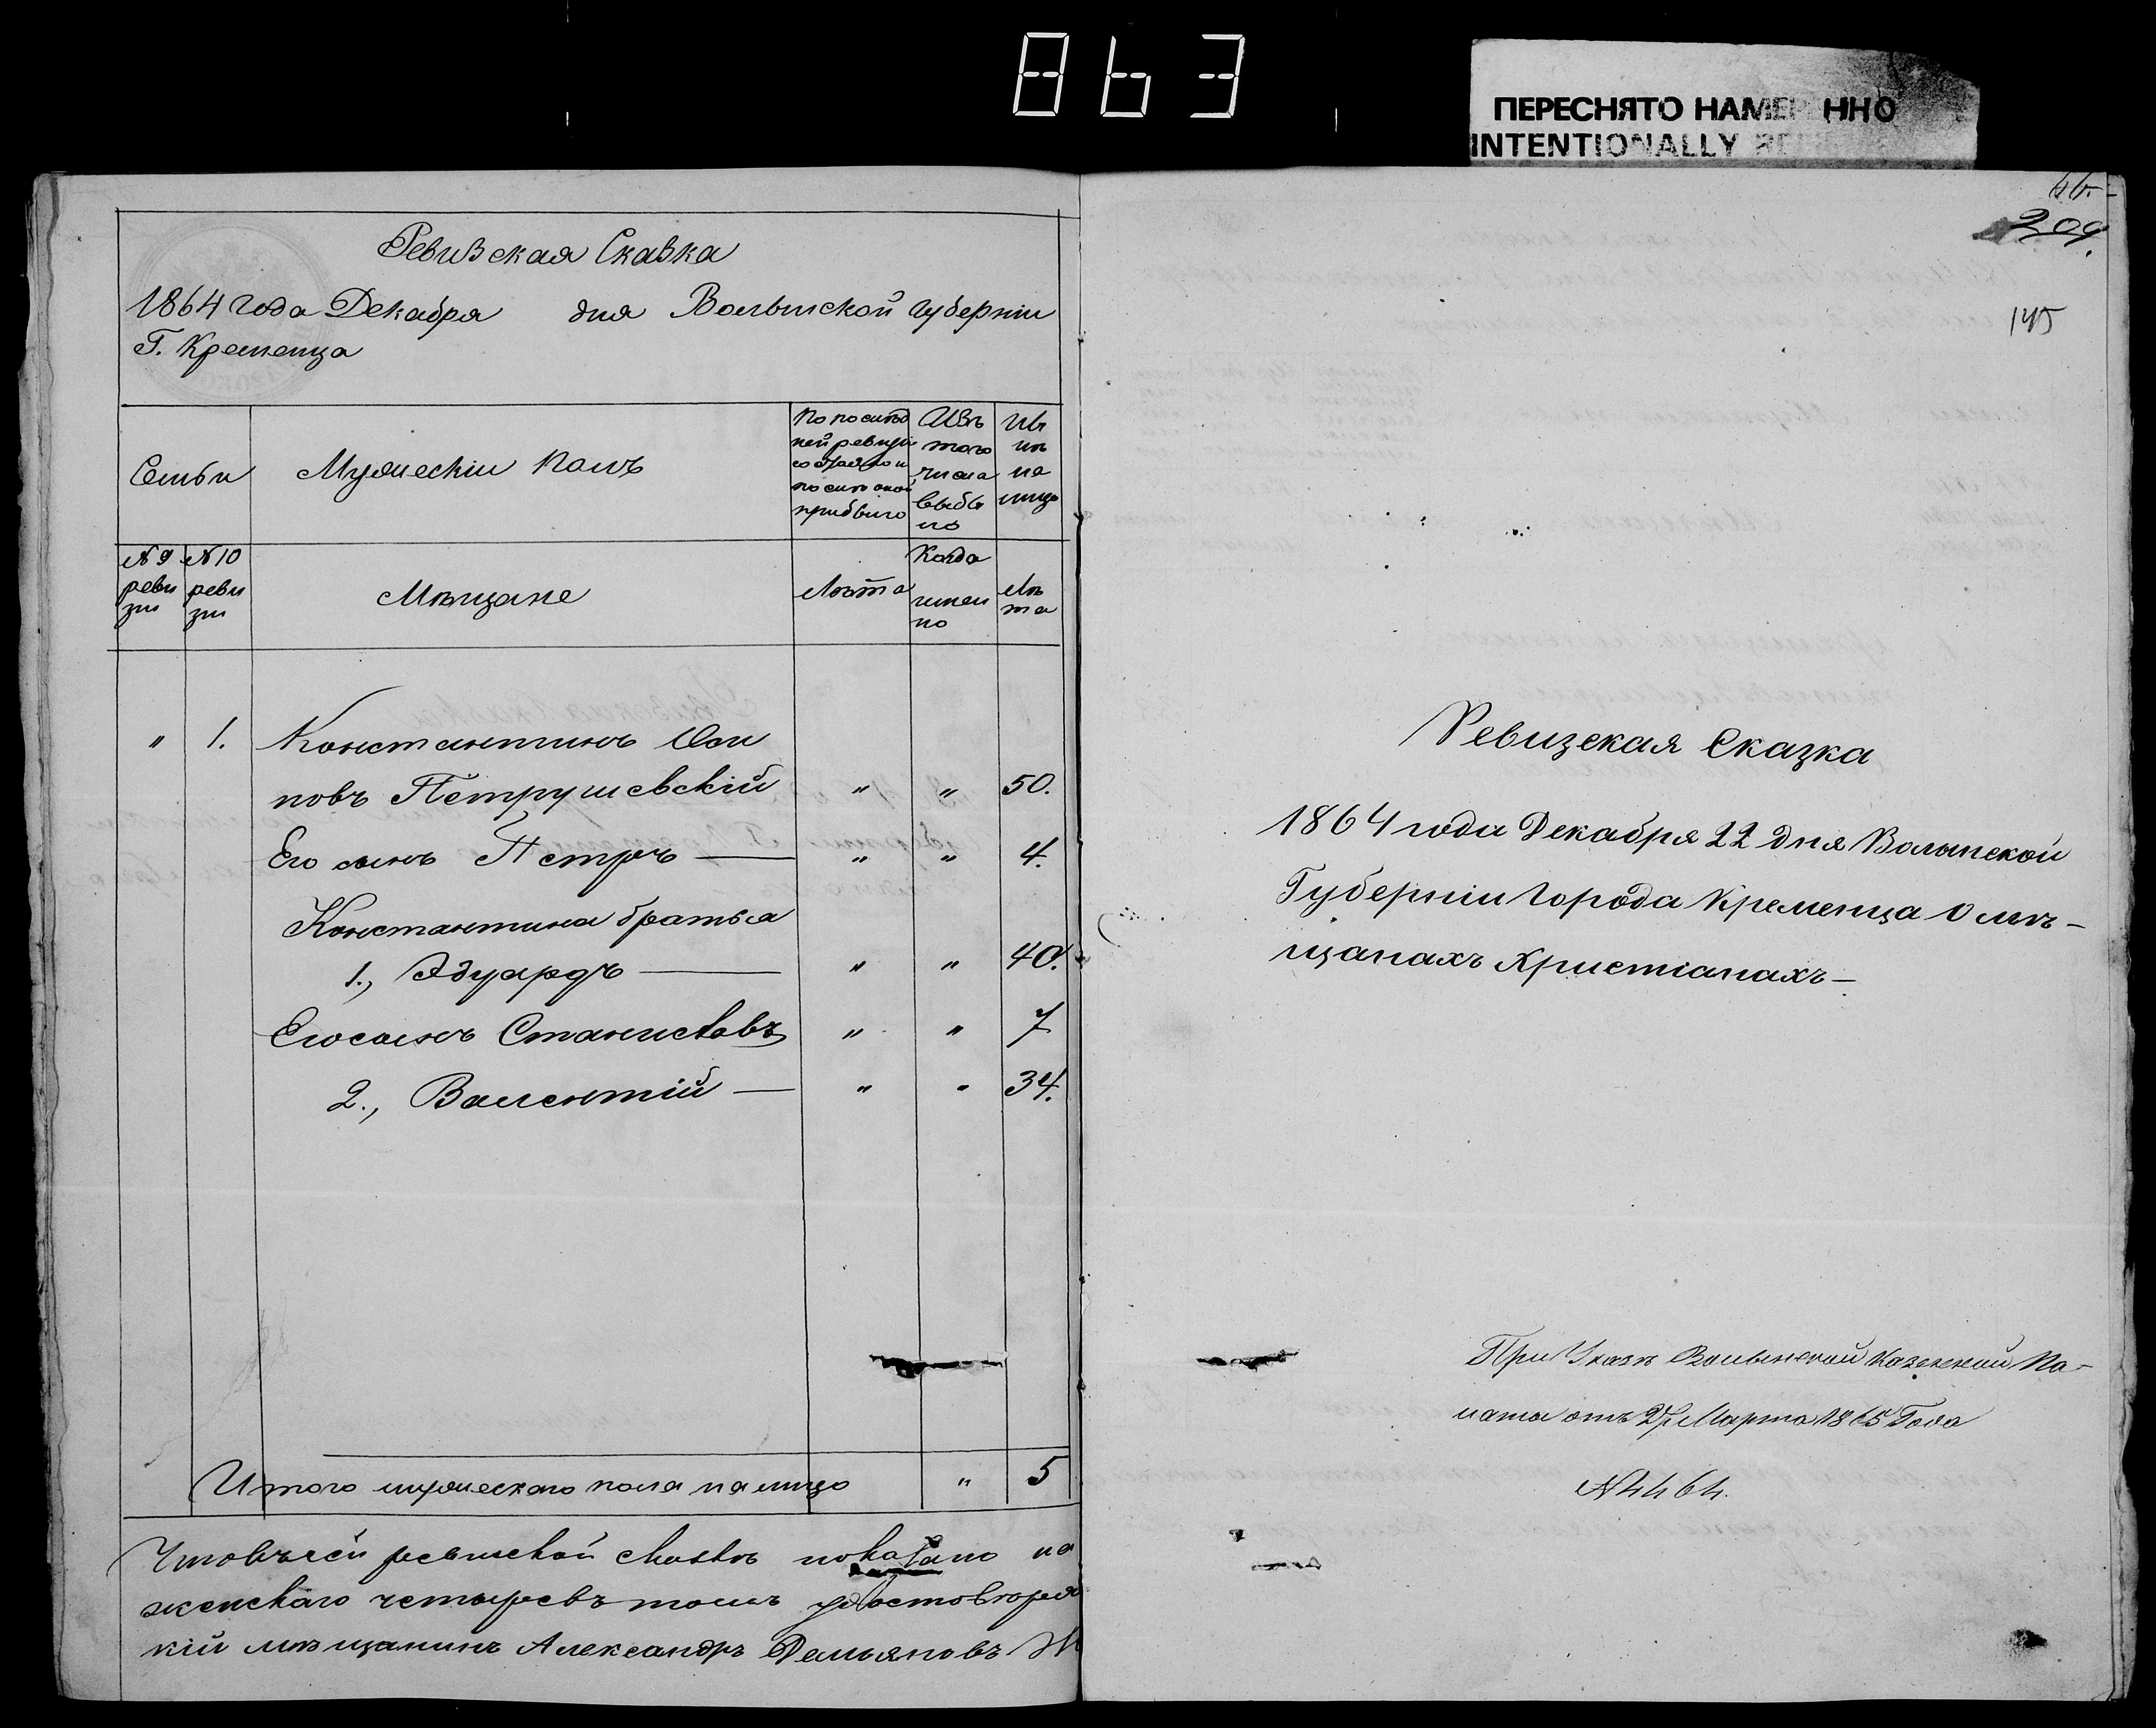 863
ПЕРЕСНЯТО НАМЕРЕННО
INTENTIONALLY
Ревизская Сказка
1864 года Декабря дня Волынской губерніи
Г. Кременца
Семьи
Мужескій полъ
По послѣд
ней ревизіи
состояло и
послѣ оной
прибыло
Изъ
того
числа
выбы
ло
На
лицо
№ 9
реви
зіи
№ 10
реви
зіи
Мѣщане
Лѣта
Когда
имен
но
Лѣ
та
" 1. Константинъ Оси
повъ Петрушевскій " " 50.
Его сынъ Петръ — " " 4.
Константина братья
1., Эдуардъ — " " 40.
Его сынъ Станиславъ " " 7
2., Валентій — " " 34.
Итого мужескаго пола на лицо " 5
Что въ сей ревизской сказкѣ показано на
женскаго четыре въ томъ удостовѣряю
кій мѣщанинъ Александръ Демьяновъ
209.
145
Ревизская Сказка
1864 года Декабря 22 дня Волынской
Губерніи Города Кременца О мѣ-
щанахъ Христіанахъ—
При Указѣ Волынской Казенной Па-
латы отъ 27 Марта 1865 Года
№ 4464.